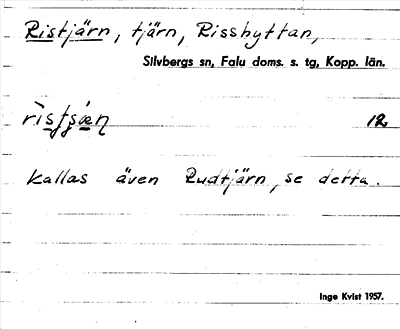 Ristjärn, tjärn, Risshyttan,
Silvbergs sn, Falu doms. s. tg, Kopp. län.
12.
Kallas även Rudtjärn, se detta.
Inge Kvist 1957.